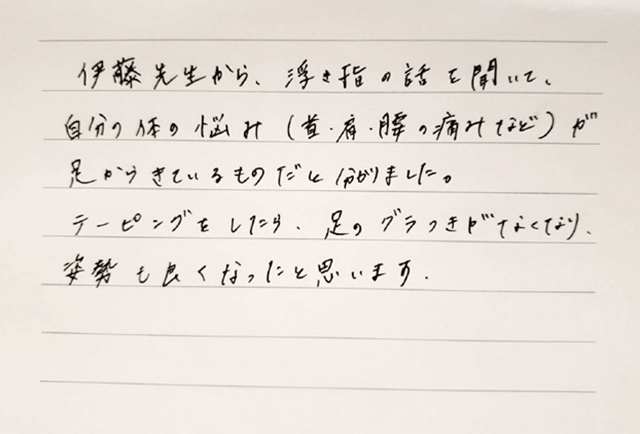 伊藤先生から、浮き指の話を聞いて、
自分の体の悩み(首・肩・腰の痛みなど)が
足からきているものだと分かりました。
テーピングをしたら、足のグラつきがなくなり、
姿勢も良くなったと思います。